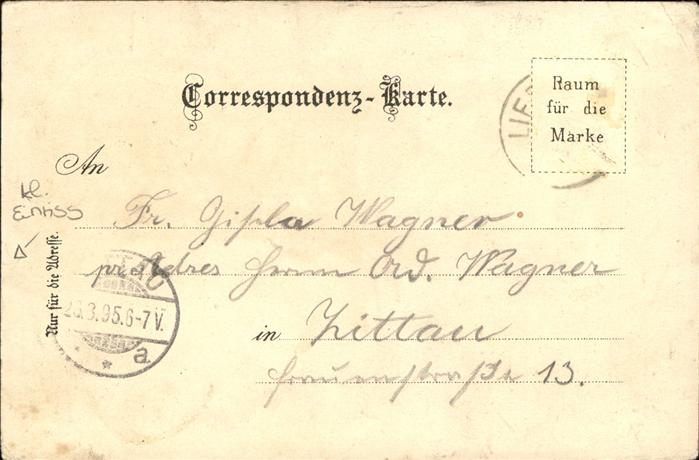 Correspondenz-Karte.
Raum
für die
Marke
LIE
An
kl.
Einriss
Nur für die Adresse.
Fr. Gisela Wagner
pr. Adres Herrn Ad. Wagner
in Zittau
Frauenstraße 13.
3.95.6-7 V.
a.